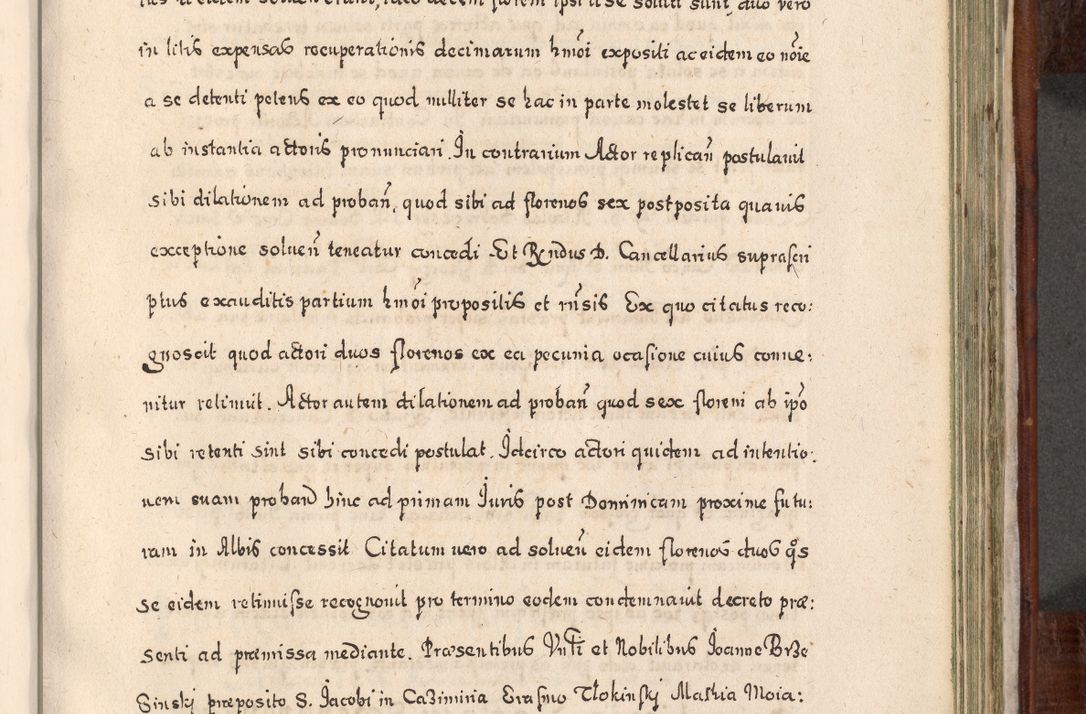 in litis expensas recuperationis decimarum hmōi expositi ac eidem eo nōie
a se detenti petens ex eo quod nulliter se hac in parte molestet se liberum
ab instantia actoris pronunciari. In contrarium Actor replicañ postulavit
sibi dilationem ad probañ, quod sibi ad florenos sex postposita quavis
exceptione solveñ teneatur concedi Et Rndus D. Cancellarius suprascri
ptus exauditis partium hmōi propositis et rñsis Ex quo citatus reco:
gnoscit quod actori duos florenos ex ea pecunia ocasione cuius conve:
nitur retinuit. Actor autem dilationem ad probañ quod sex floreni ab ipō
sibi retenti sint sibi concedi postulat. Idcirco actori quidem ad intentio:
nem suam proband hinc ad primam Iuris post Dominicam proxime futu:
ram in Albis concessit Citatum vero ad solveñ eidem florenos duos qs
se eidem retinuisse recognovit pro termino eodem condemnavit decreto præ:
senti ad præmissa mediante. Præsentibus Vnli et Nobilibus Joanne Brze
Sinski præposito S. Jacobi in Cazimiria Erasmo Tlokinski Mathia Moia: